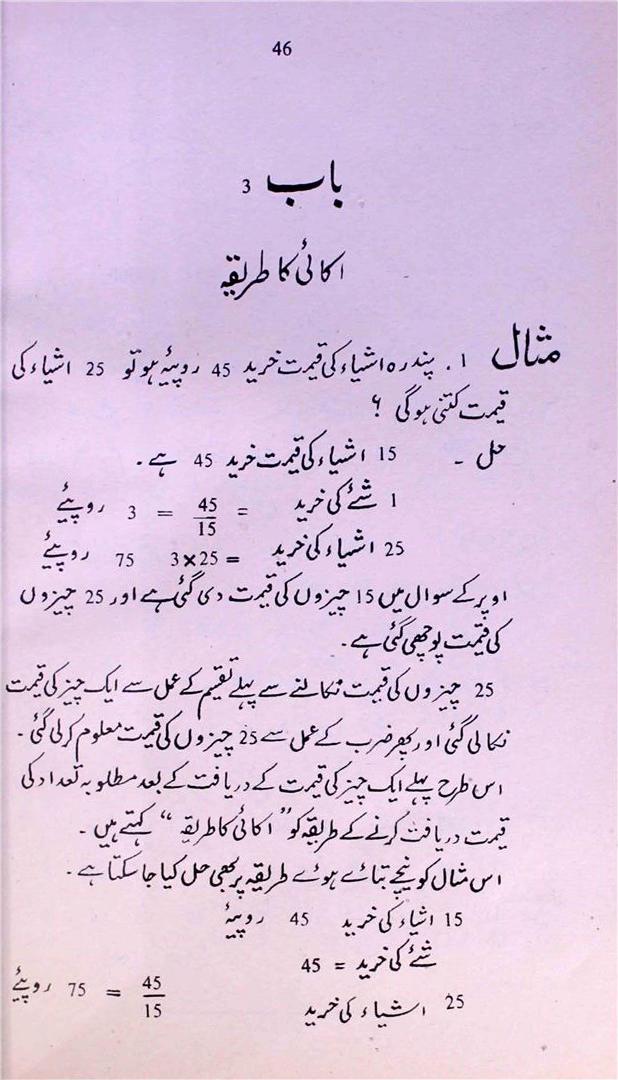 46
باب 3
اکائی کا طریقہ
مثال 1 . پندرہ اشیاء کی قیمت خرید 45 روپیۂ ہو تو 25 اشیاء کی
قیمت کتنی ہوگی ؟
حل ۔ 15 اشیاء کی قیمت خرید 45 ہے ۔
1 شئے کی خرید = 45/15 = 3 روپیئے
25 اشیاء کی خرید = 3×25 75 روپیئے
اوپر کے سوال میں 15 چیزوں کی قیمت دی گئی ہے اور 25 چیزوں
کی قیمت پوچھی گئی ہے ۔
25 چیزوں کی قیمت نکالنے سے پہلے تقیم کے عمل سے ایک چیز کی قیمت
نکالی گئی اور پھر ضرب کے عمل سے 25 چیزوں کی قیمت معلوم کرلی گئی ۔
اس طرح پہلے ایک چیز کی قیمت کے دریافت کے بعد مطلوبہ تعداد کی
قیمت دریافت کرنے کے طریقہ کو " اکائی کا طریقہ " کہتے ہیں ۔
اس مثال کو نیچے بتائے ہوے طریقہ پر بھی حل کیا جا سکتا ہے ۔
15 اشیاء کی خرید 45 روپیۂ
شئے کی خرید = 45
25 اشیاء کی خرید 45/15 = 75 روپیئے